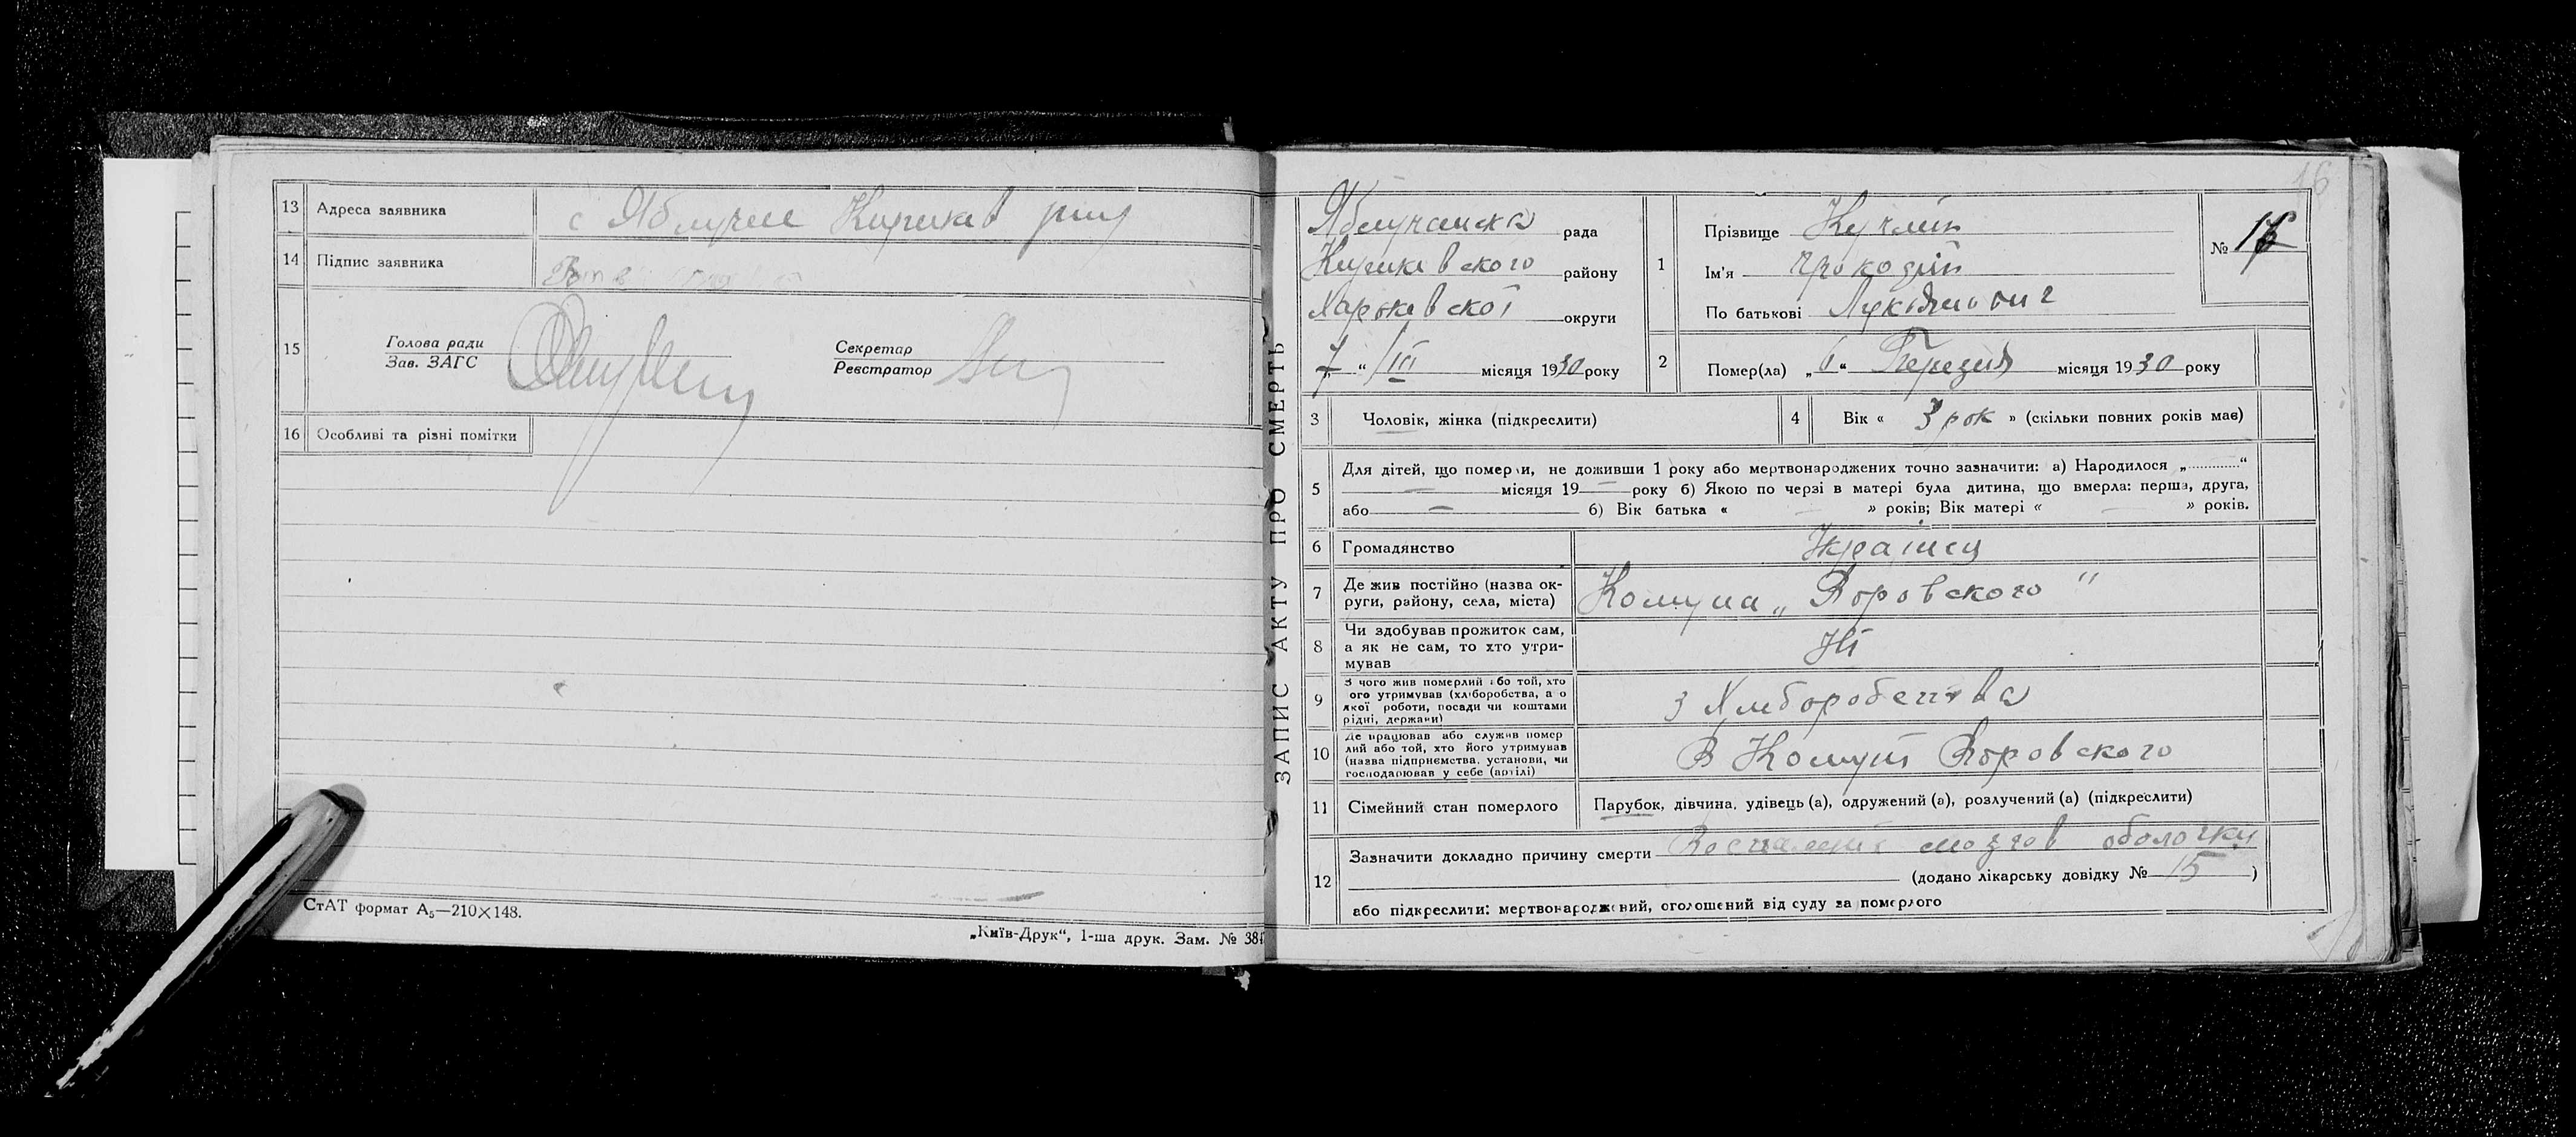 13 Адреса заявника с Яблучне Кириків
14 Підпис заявника
15 Голова ради
Зав. ЗАГС
Секретар
Реєстратор
16 Особливі та різні помітки
СтАТ формат А₅—210×148.
„Київ-Друк“, 1-ша друк. Зам. № 381
ЗАПИС АКТУ ПРО СМЕРТЬ
16
Яблучанска рада
Кириківского району
Харьківскої округи
7 “ ІІІ місяця 1930 року
1 Прізвище
Ім'я
По батькові
№
2 Помер(ла) „ “ Березня місяця 1930 року
3 Чоловік, жінка (підкреслити)
4 Вік « 3 рок » (скільки повних років має)
5 Для дітей, що померли, не доживши 1 року або мертвонароджених точно зазначити: а) Народилося „ “
— місяця 19 — року б) Якою по черзі в матері була дитина, що вмерла: перша, друга,
або — б) Вік батька « — » років; Вік матері « — » років.
6 Громадянство Українец
7 Де жив постійно (назва ок-
руги, району, села, міста) Комуна „Воровского"
8 Чи здобував прожиток сам,
а як не сам, то хто утри-
мував Ні
9 З чого жив померлий або той, хто
ого утримував (хліборобства, а о
якої роботи, посади чи коштами
рідні, держави) з Хліборобства
10 Де працював або служив помер
лий або той, хто його утримував
(назва підприємства, установи, чи
господарював у себе (артілі) В Комуні Воровского
11 Сімейний стан померлого Парубок, дівчина, удівець (а), одружений (а), розлучений (а) (підкреслити)
12 Зазначити докладно причину смерти Воспаленія мозгов оболочки
(додано лікарську довідку № 15 )
або підкреслити: мертвонароджений, оголошений від суду за померлого